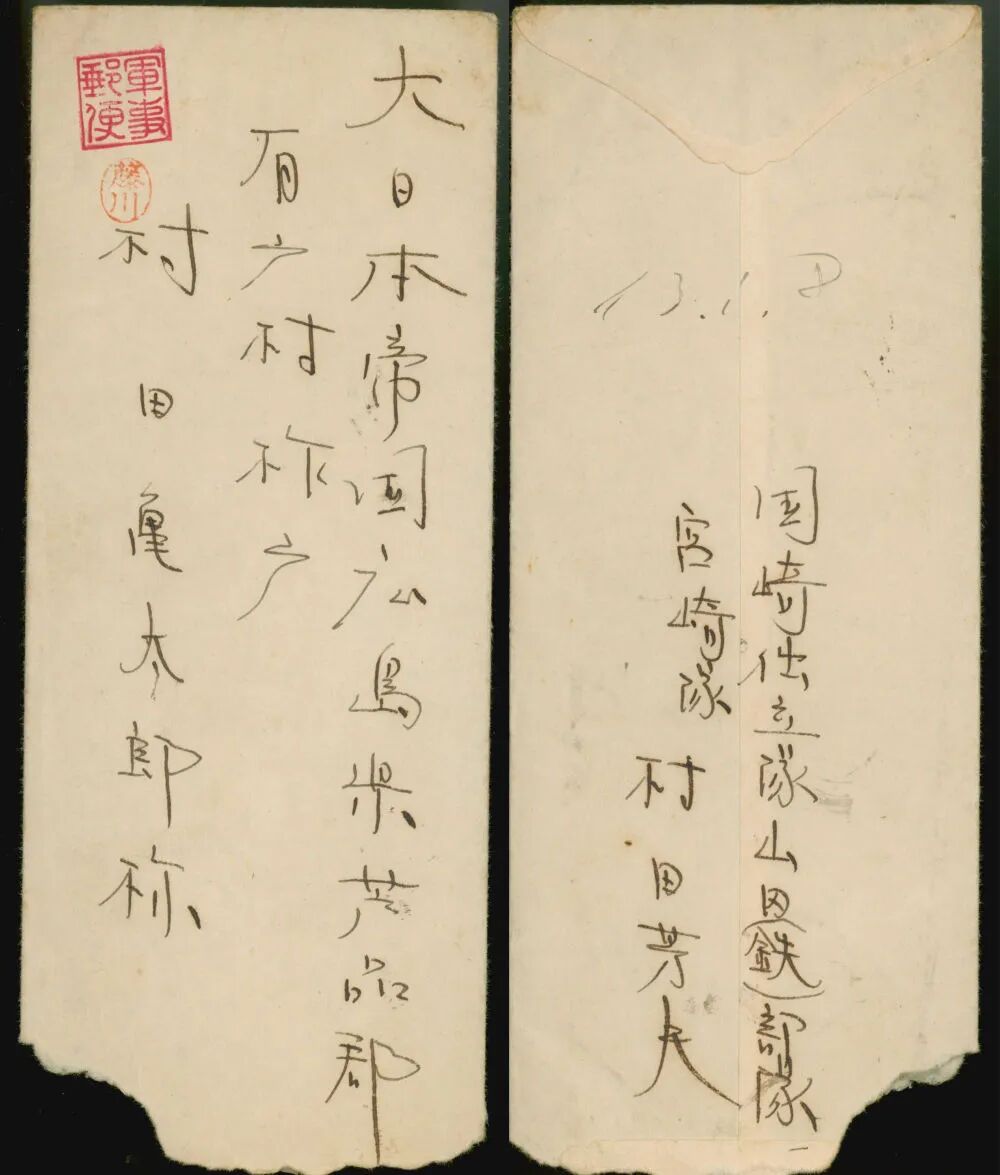 軍事
郵便
藤川
大日本帝国広島県芦品郡
有广村柞广
村田亀太郎様
13.1.8
国崎仕立隊山田(鉄)部隊
宮崎隊
村田芳夫